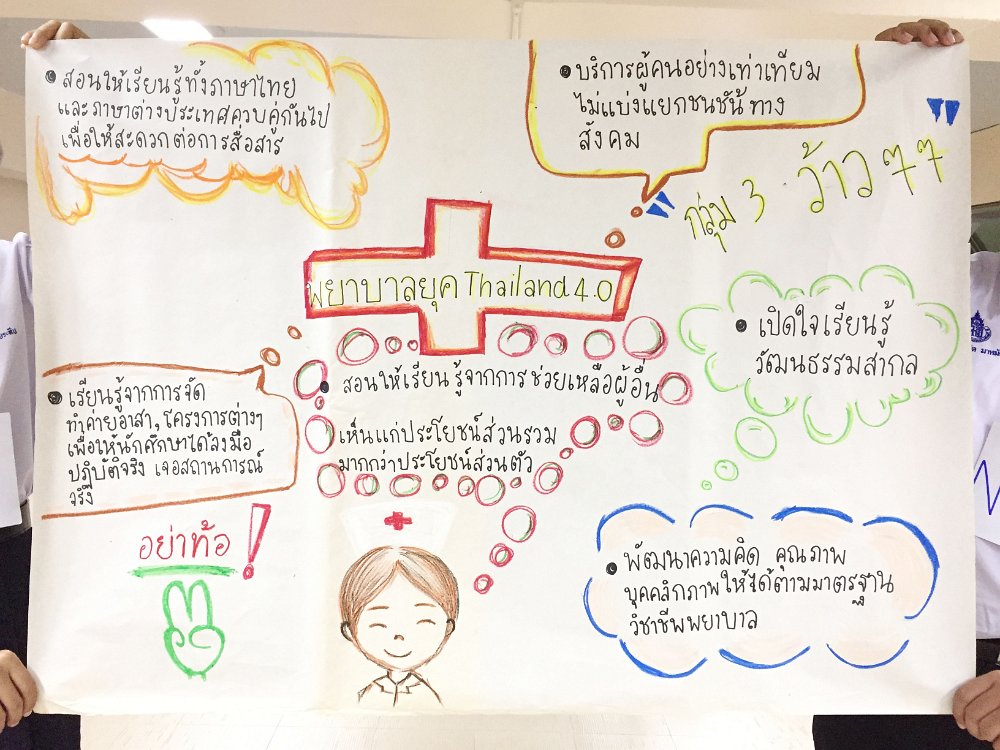 • สอนให้เรียนรู้ทั้งภาษาไทย
และภาษาต่างประเทศควบคู่กันไป
เพื่อให้สะดวกต่อการสื่อสาร
• บริการผู้คนอย่างเท่าเทียม
ไม่แบ่งแยกชนชั้นทาง
สังคม
" กลุ่ม 3 ว้าว 77 "
พยาบาลยุค Thailand 4.0
• เปิดใจเรียนรู้
วัฒนธรรมสากล
• สอนให้เรียนรู้จากการช่วยเหลือผู้อื่น
เห็นแก่ประโยชน์ส่วนรวม
มากกว่าประโยชน์ส่วนตัว
• เรียนรู้จากการจัด
ทำค่ายอาสา, โครงการต่างๆ
เพื่อให้นักศึกษาได้ลงมือ
ปฏิบัติจริง เจอสถานการณ์
จริง
อย่าท้อ!
• พัฒนาความคิด คุณภาพ
บุคคลิกภาพให้ได้ตามมาตรฐาน
วิชาชีพพยาบาล